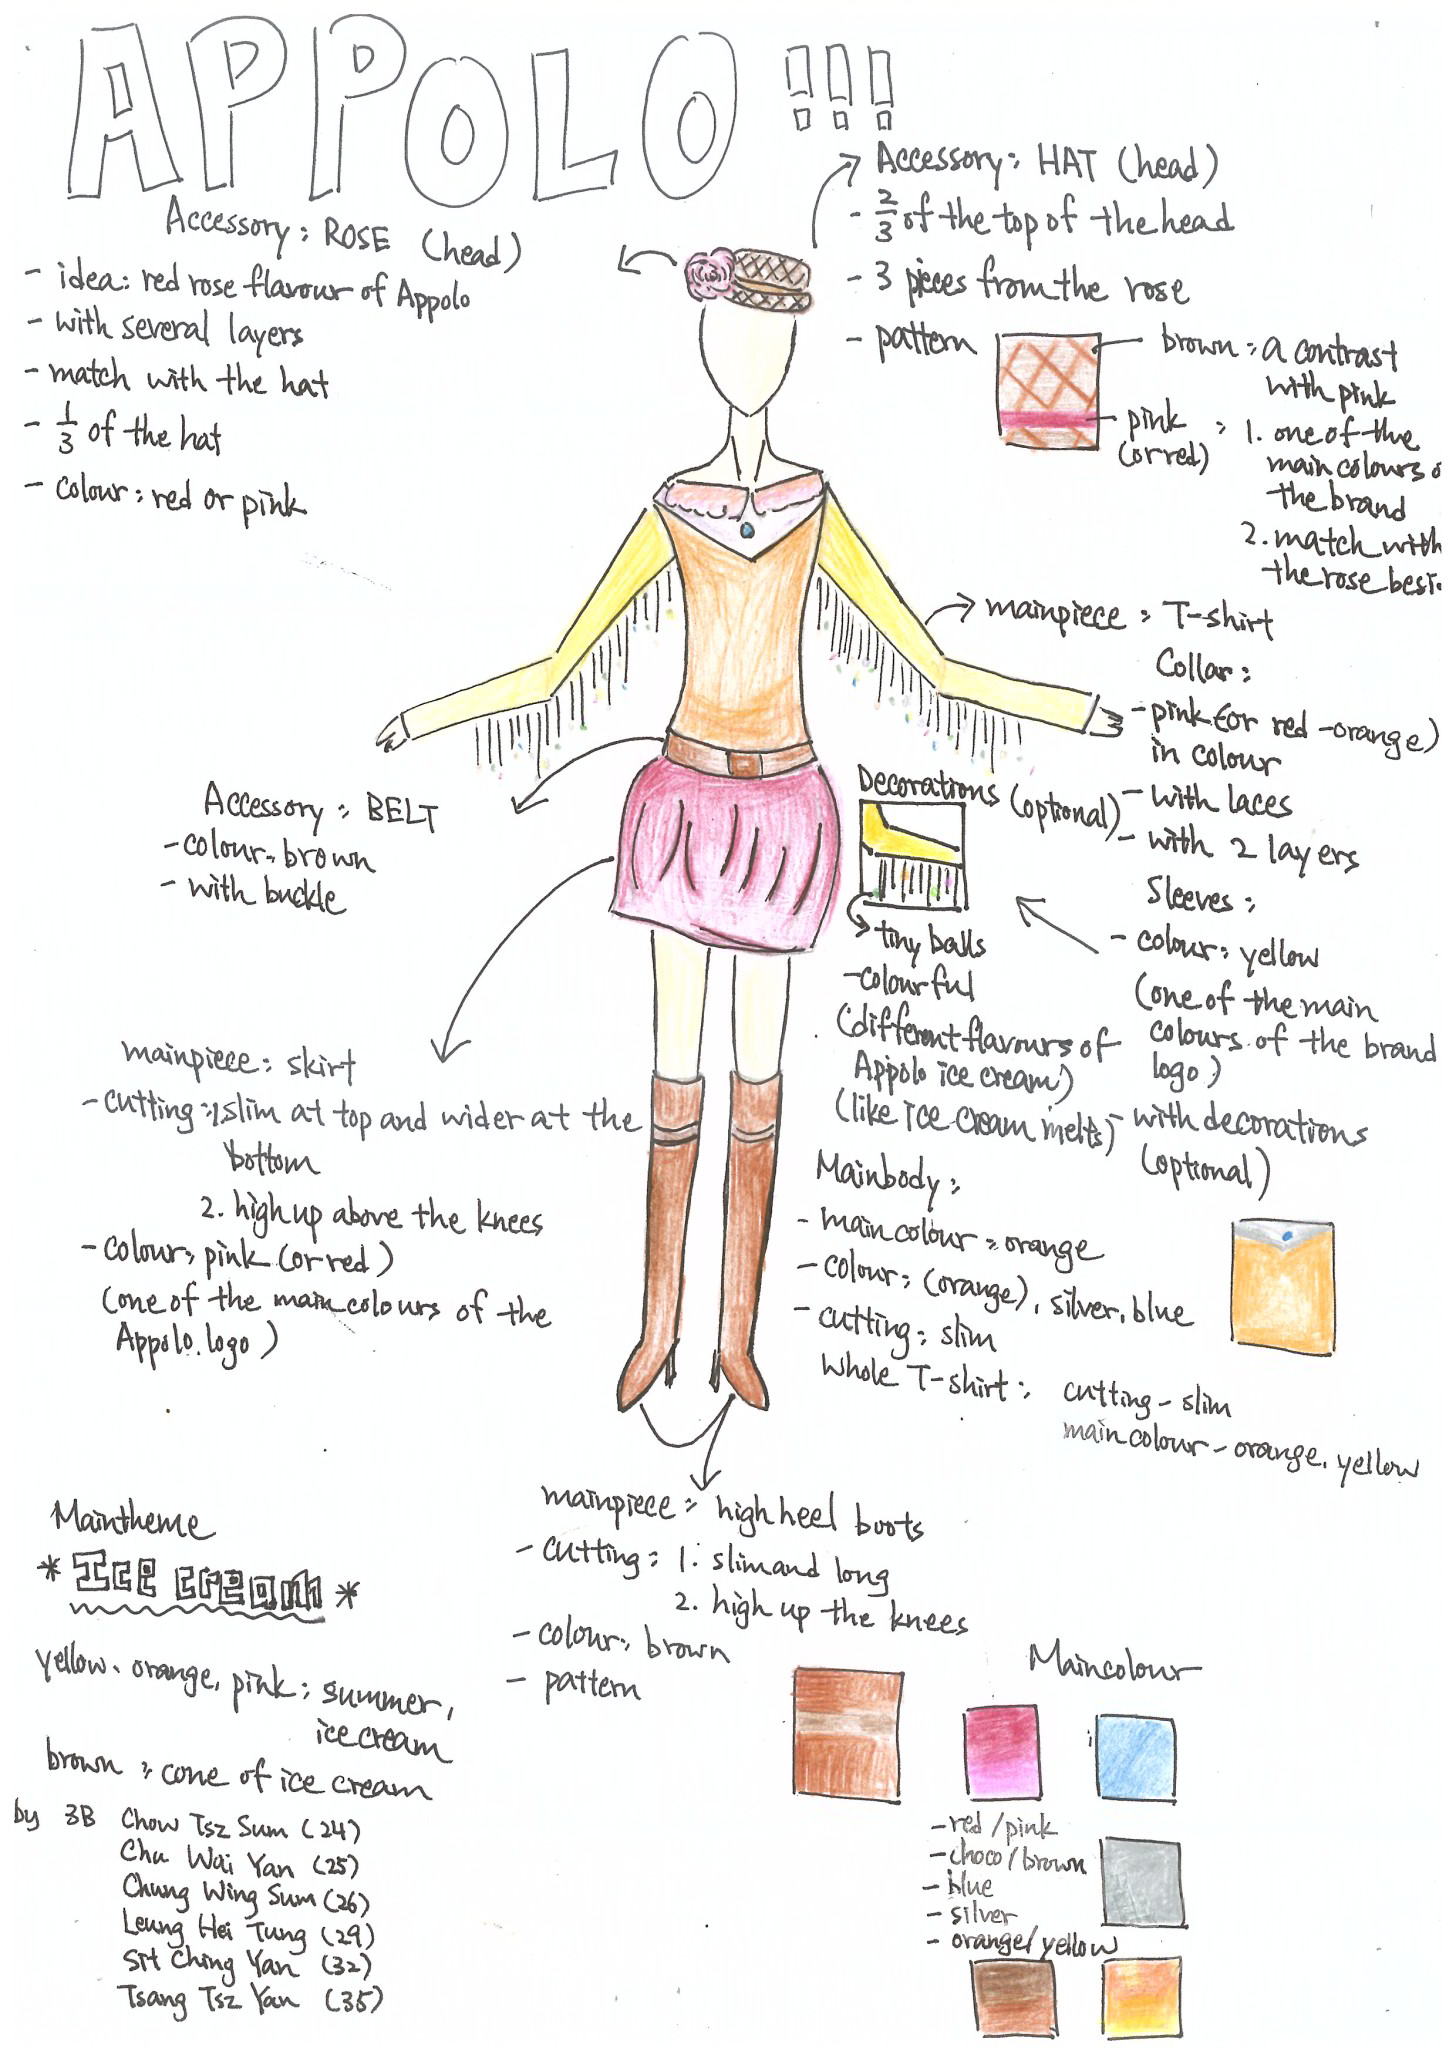 APPOLO !!!
Accessory: ROSE (head)
- idea: red rose flavour of Appolo
- with several layers
- match with the hat
- 1/3 of the hat
- colour: red or pink
Accessory: HAT (head)
- 2/3 of the top of the head
- 3 pieces from the rose
- pattern
brown: a contrast
with pink
pink
(or red)
: 1. one of the
main colours o
the brand
2. match with
the rose best.
mainpiece: T-shirt
Collar:
- pink (or red-orange)
in colour
- with laces
- with 2 layers
Sleeves:
- colour: yellow
(one of the main
colours of the brand
logo)
- with decorations
(optional)
Decorations (optional)
tiny balls
- colourful
(different flavours of
Appolo ice cream)
(like ice cream melts)
Accessory: BELT
- colour: brown
- with buckle
mainpiece: skirt
- cutting: 1. slim at top and wider at the
bottom
2. high up above the knees
- colour: pink (or red)
(one of the main colours of the
Appolo logo)
Mainbody:
- main colour: orange
- colour: (orange), silver, blue
- cutting: slim
whole T-shirt: cutting - slim
main colour - orange, yellow
mainpiece: high heel boots
- cutting: 1. slim and long
2. high up the knees
- colour: brown
- pattern
Maintheme
* Ice cream *
yellow, orange, pink: summer,
ice cream
brown: cone of ice cream
by 3B Chow Tsz Sum (24)
Chu Wai Yan (25)
Chung Wing Sum (26)
Leung Hei Tung (29)
Sit Ching Yan (32)
Tsang Tsz Yan (35)
Maincolour
- red/pink
- choco/brown
- blue
- silver
- orange/yellow